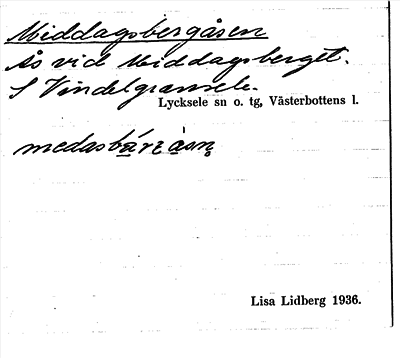 Middagsbergåsen
Ås vid Middagsberget.
S Vindelgransele.
Lycksele sn o. tg, Västerbottens l.
Lisa Lidberg 1936.